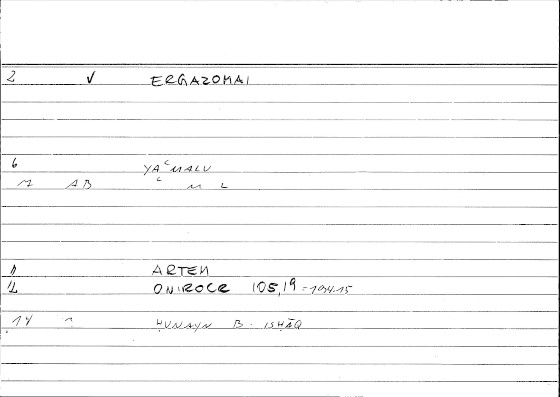 2 V ERGAZOMAI
6 YAʿMALU
M AB ʿ M L
11 ARTEM
12 ONIROCR 105,19 = 194.15
14 ḤUNAYN B. ISḤĀQ